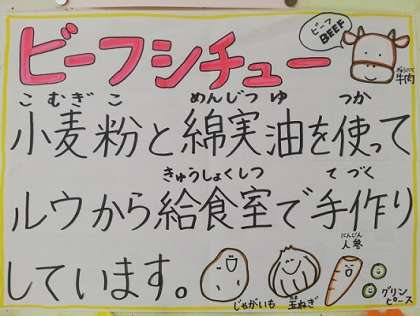 ビーフシチュー
ビーフ
BEEF
牛肉
こむぎこ めんじつゆ つか
小麦粉と綿実油を使って
きゅうしょくしつ てづく
ルウから給食室で手作り
しています。
じゃがいも
玉ねぎ
にんじん
人参
グリン
ピース